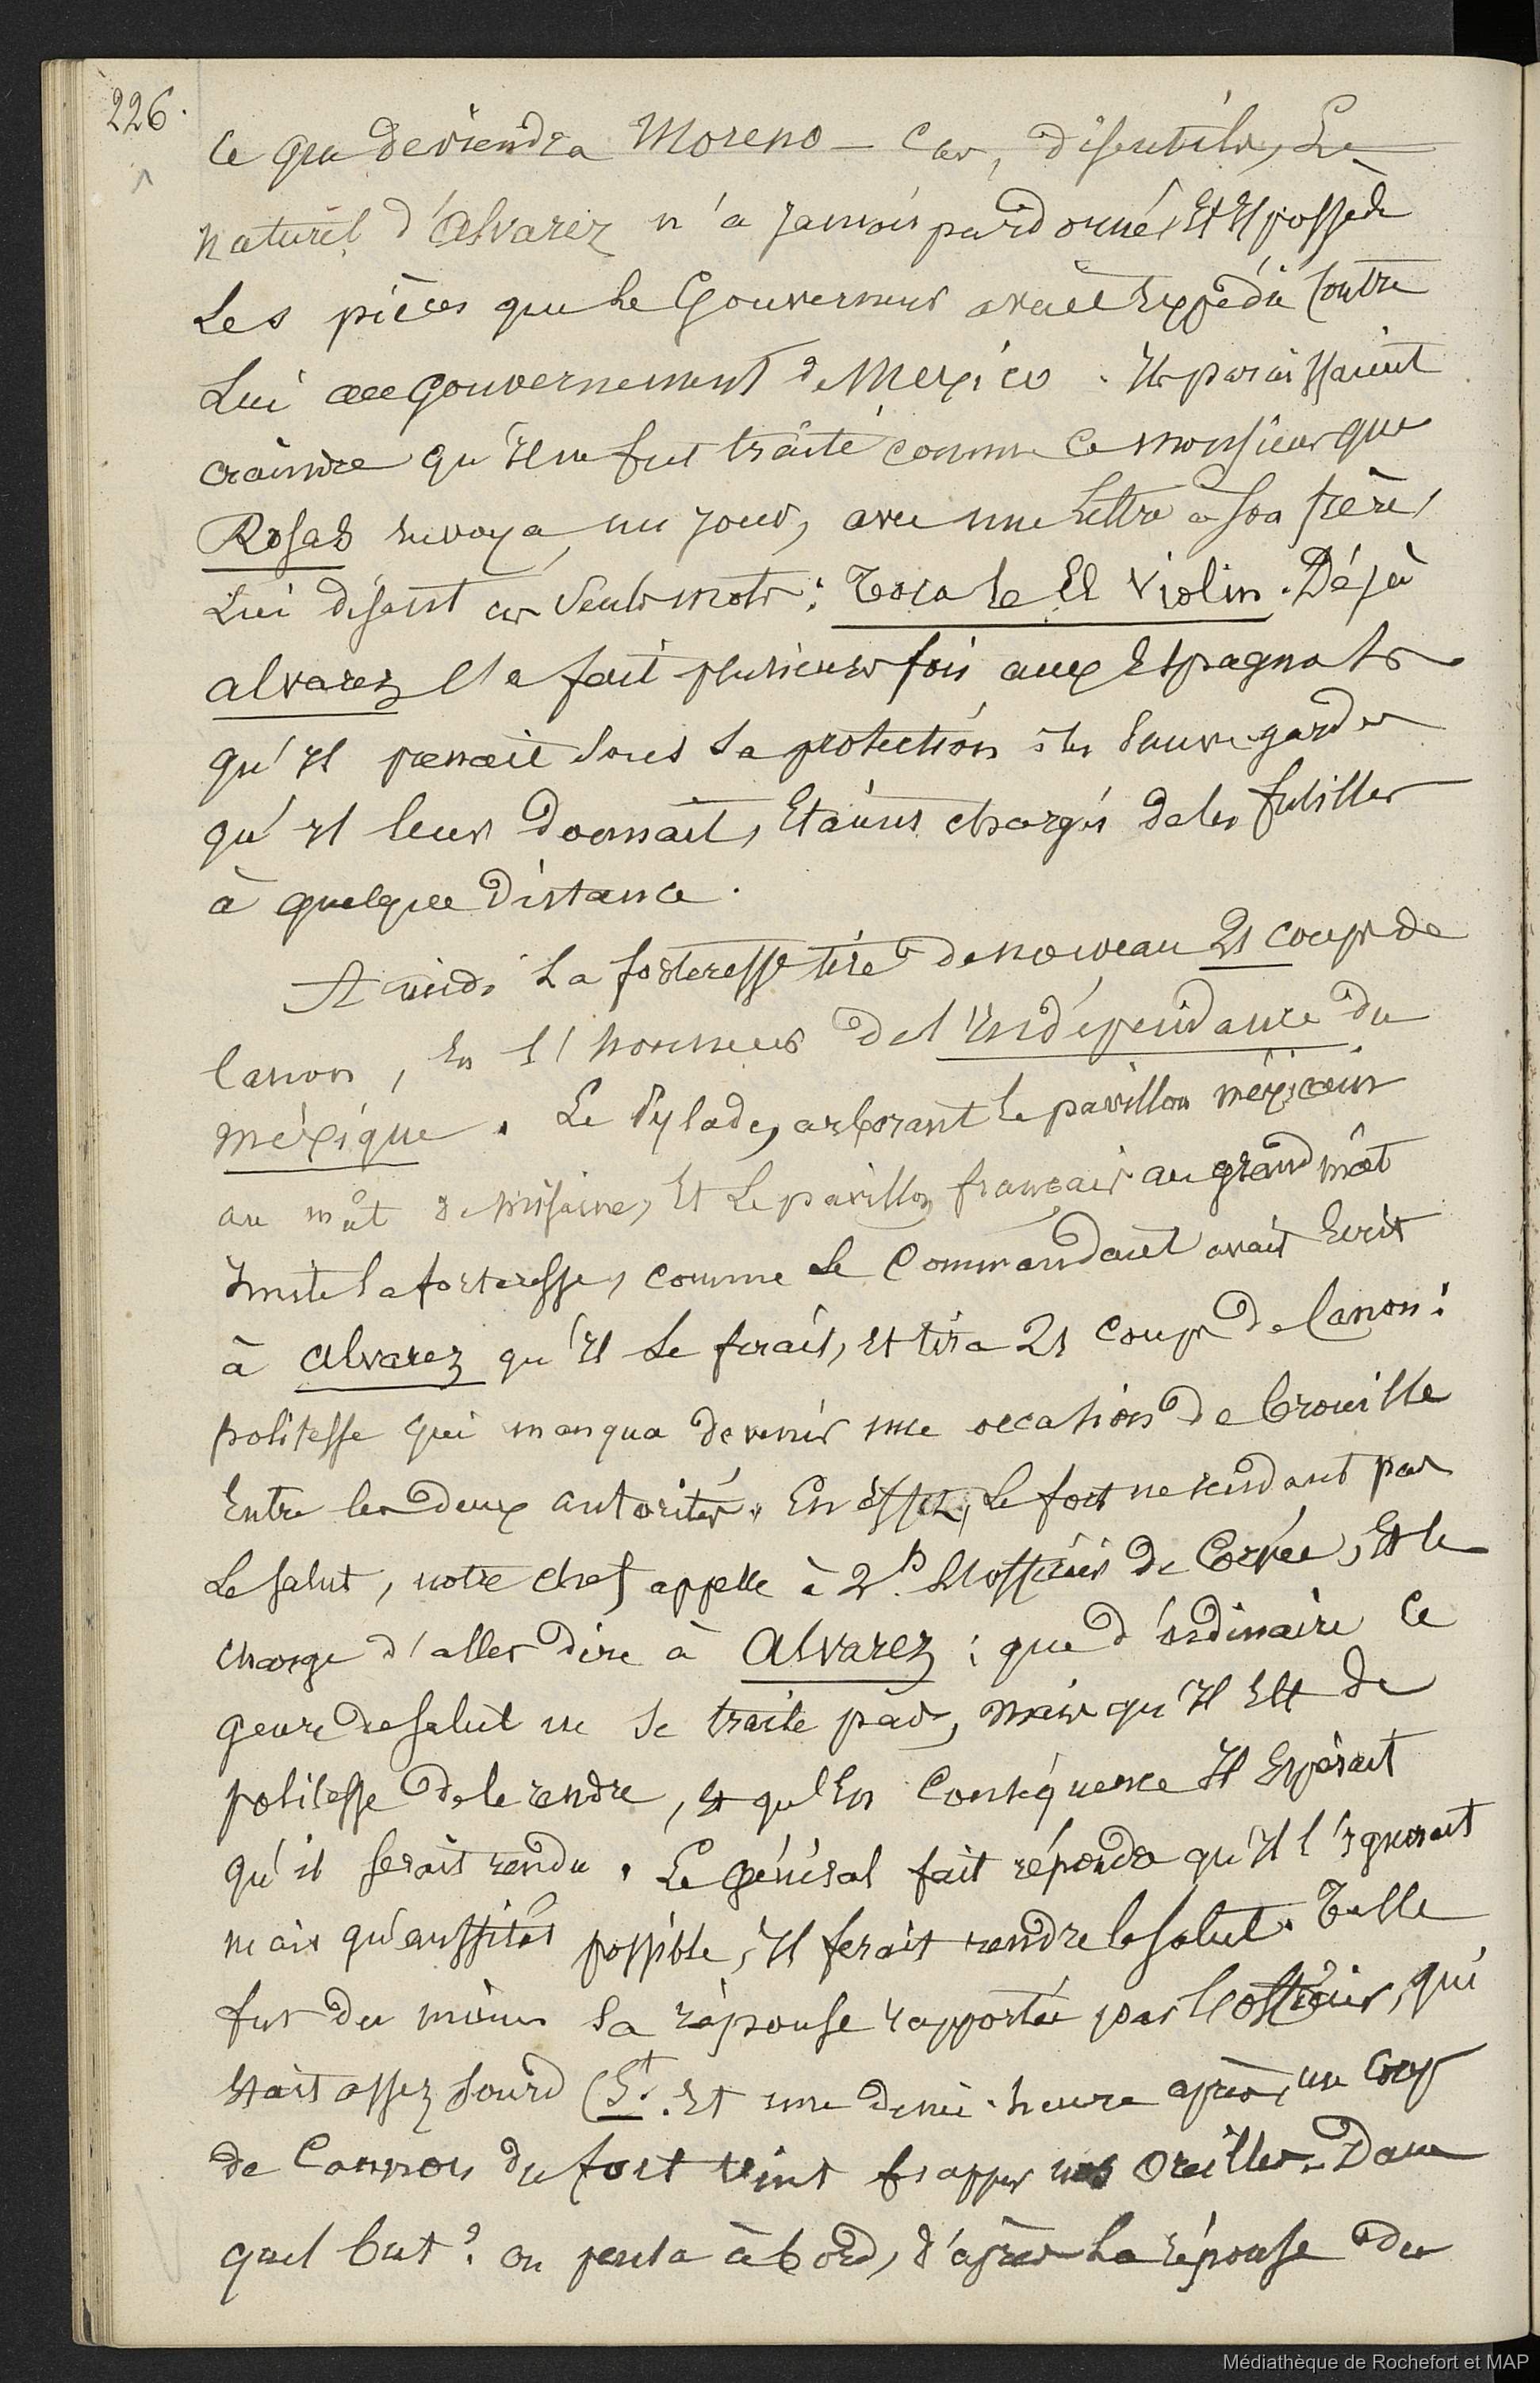 226.
Ce que deviendra Moreno - Car, disent-ils, Le
naturel d'Alvarez n'a jamais pardonné, Et Il possède
Les pièces que Le Gouverneur avait Expédié Contre
Lui au Gouvernement de Mexico. Ils paraissaient
craindre qu'Il ne fut traité comme Ce monsieur que
Rosas envoya, un jour, avec une Lettre à son frère,
Lui disant ces seuls mots : Toca le El Violin. Déjà
alvarez l'a fait plusieurs fois aux Espagnols
qu'Il prenait sous sa protection : les sauvegardes
qu'Il leur donnait, Etaient chargés de les fusiller
à quelque distance.
A midi La forteresse tire de nouveau 21 coups de
Canon, En l'honneur de l'Indépendance du
méxique. Le Pylade, arborant le pavillon méxicain
au mât de misaine, Et Le pavillon français au grand mât
Imite la forteresse, comme Le Commandant avait Ecrit
à Alvarez qu'Il Le ferait, et tira 21 coups de Canon :
politesse qui manqua devenir une occasion de brouille
Entre les deux autorités. En effet, Le fort ne rendant pas
Le salut, notre chef appelle à 2h. l'officier de Corvée, Et le
charge d'aller dire à Alvarez : que d'ordinaire Ce
genre de salut ne se traite pas, mais qu'Il Est de
politesse de le rendre, et qu'En Conséquence Il Espérait
qu'il serait rendu. Le Général fait répondre qu'Il l'Ignorait
mais qu'aussitôt possible, Il ferait rendre le salut. Telle
fut du moins La réponse rapportée par l'officier, qui
Etait assez sourd (St. Et une demi-heure après, un Coup
de Cannon du fort vint frapper nos Oreilles. Dans
quel but ? on pensa à bord, d'après La réponse du
Médiathèque de Rochefort et MAP